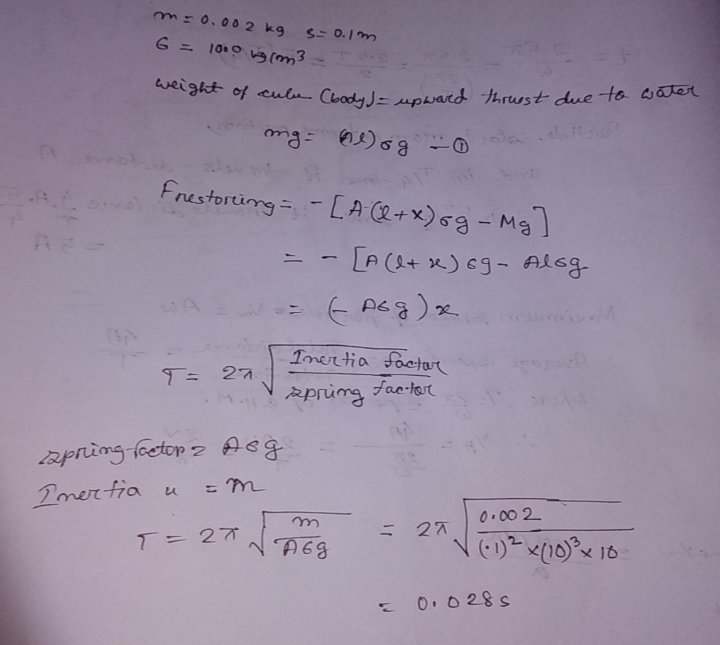 m = 0.002 kg s = 0.1m
σ = 1000 kg/m³
weight of cube (body) = upward thrust due to water
mg = (Al)σg — ①
Frestoring = - [A(l+x)σg - Mg]
= - [A(l+x)σg - Alσg
= (-Aσg)x
T = 2π √(Inertia factor / spring factor)
spring factor = Aσg
Inertia u = m
T = 2π √(m / Aσg) = 2π √(0.002 / (.1)² x (10)³ x 10)
= 0.028s